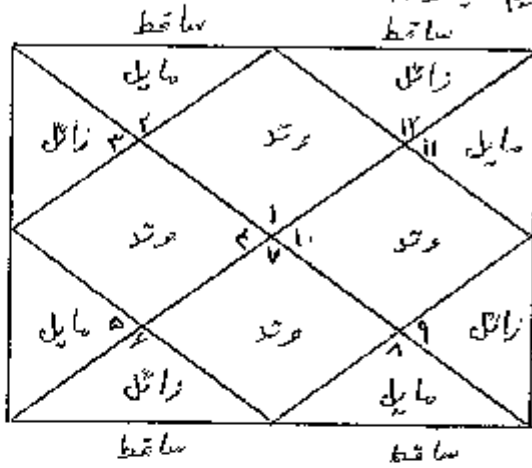 ساقط ساقط
مایل زائل
زائل ۳ ۲ وتد ۱۲ ۱۱ مایل
وتد ۴ ۱ ۷ ۱۰ وتد
مایل ۵ ۶ وتد ۸ ۹ زائل
زائل مایل
ساقط ساقط